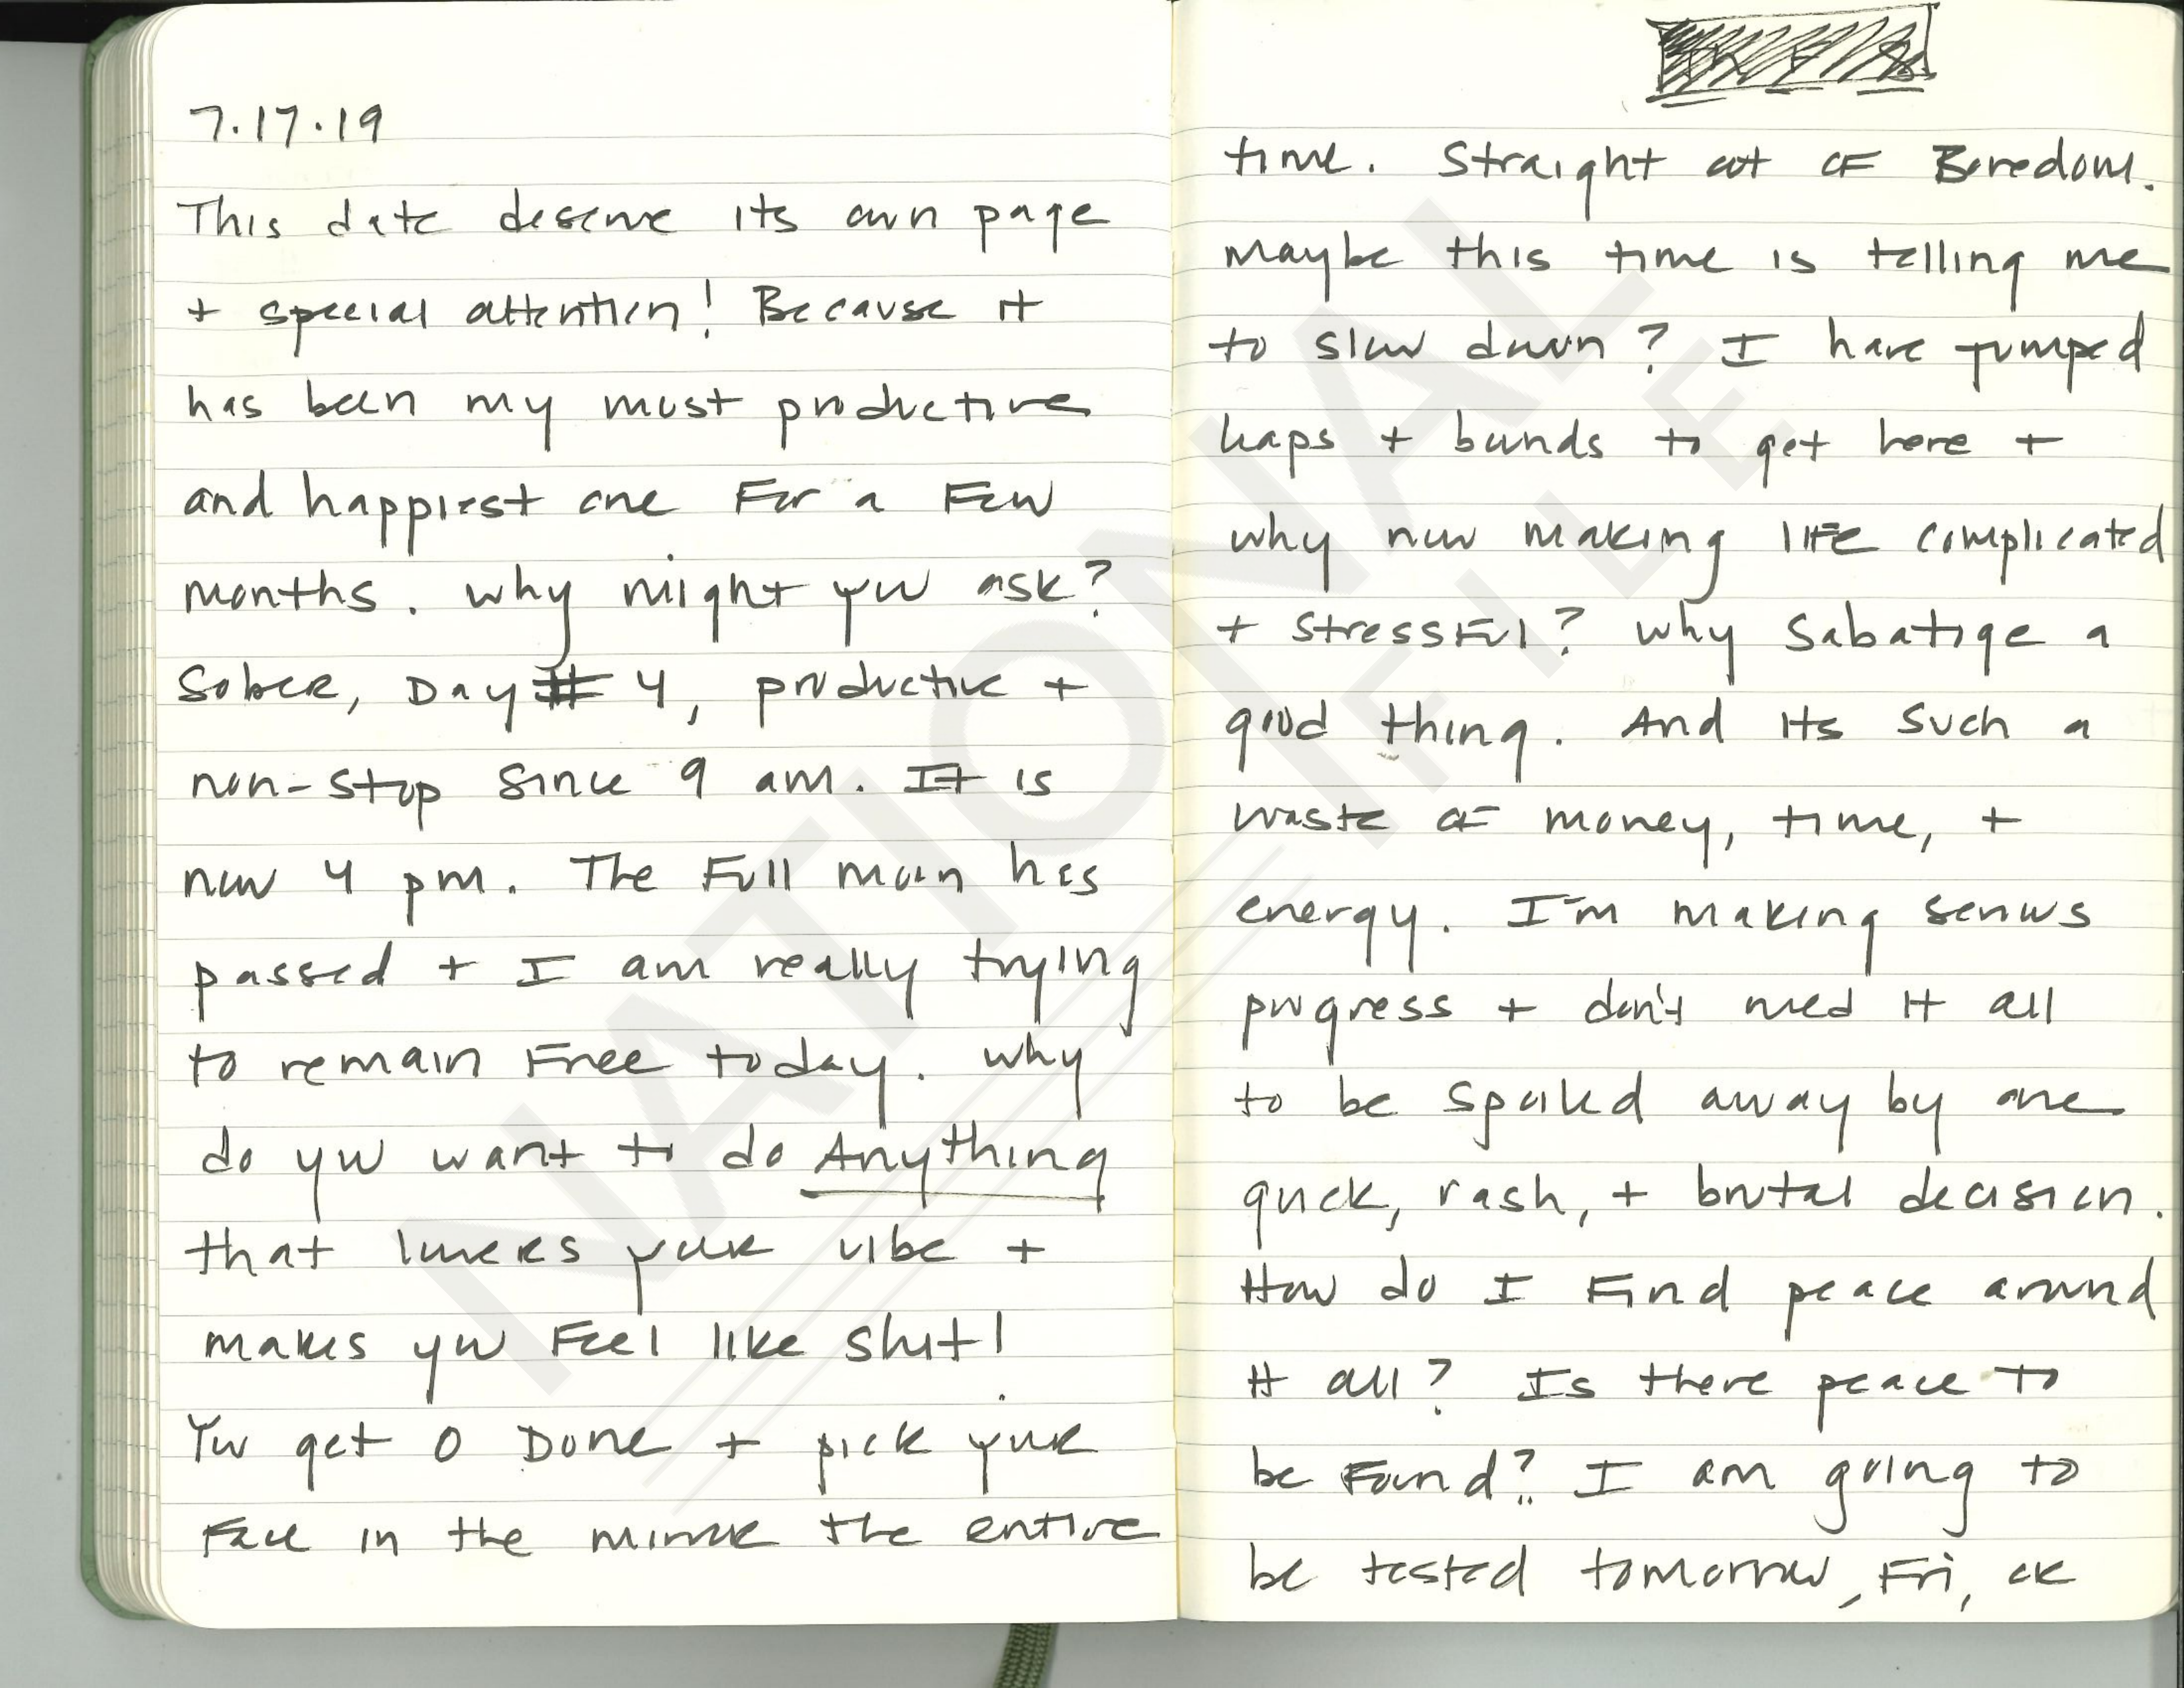 7.17.19
This date deserve its own page
+ special attention! Because it
has been my most productive
and happiest one For a Few
months. why might you ask?
Sober, Day # 4, productive +
non-stop since 9 am. It is
now 4 pm. The Full moon has
passed + I am really trying
to remain Free today. why
do you want to do Anything
that lowers your vibe +
makes you Feel like shit!
You get 0 Done + pick your
Face in the mirror the entire
time. Straight out of Boredom.
maybe this time is telling me
to slow down? I have jumped
leaps + bounds to get here +
why now making life complicated
+ stressful? why Sabatige a
good thing. And its such a
waste of money, time, +
energy. I'm making serious
progress + don't need it all
to be spoiled away by one
quick, rash, + brutal decision.
How do I Find peace around
it all? Is there peace to
be Found? I am going to
be tested tomorrow, Fri, or
NATIONAL
FILE